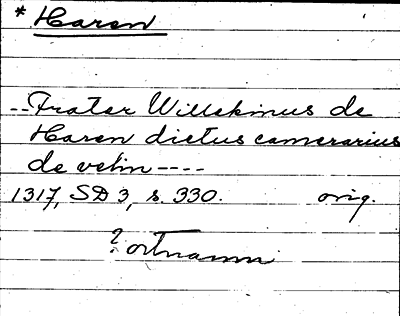 * Haren
--Frater Willekinus de
Haren dictus camerarius
de velin----
1317, SD 3, s. 330. orig.
? ortnamn